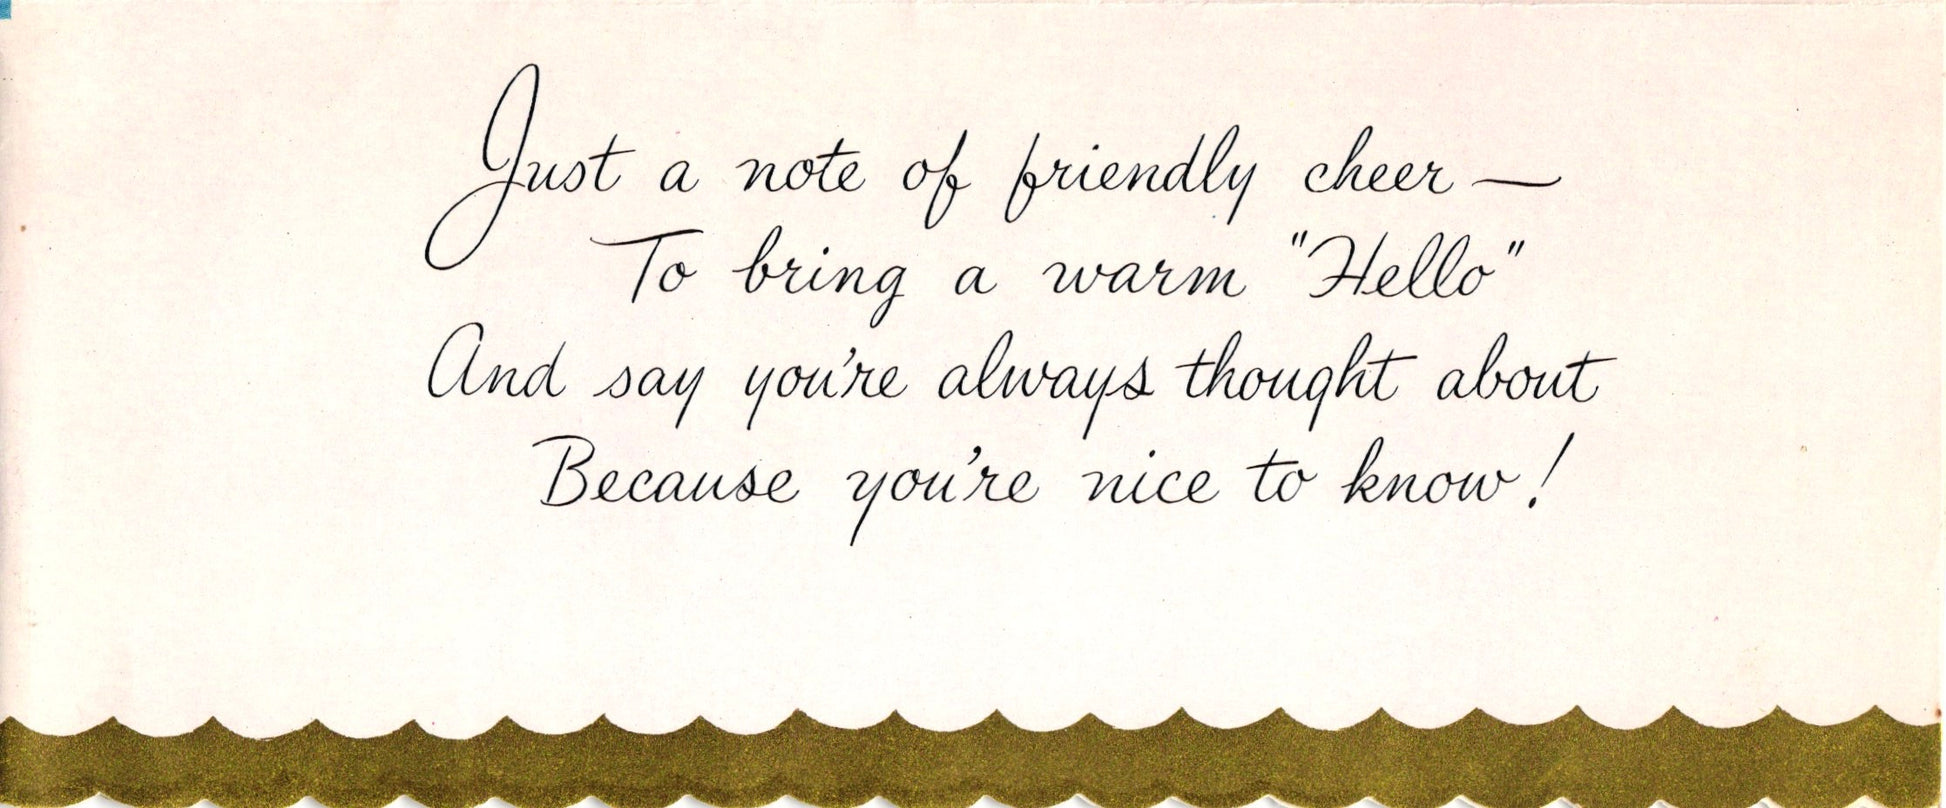 Just a note of friendly cheer —
To bring a warm "Hello"
And say you're always thought about
Because you're nice to know!